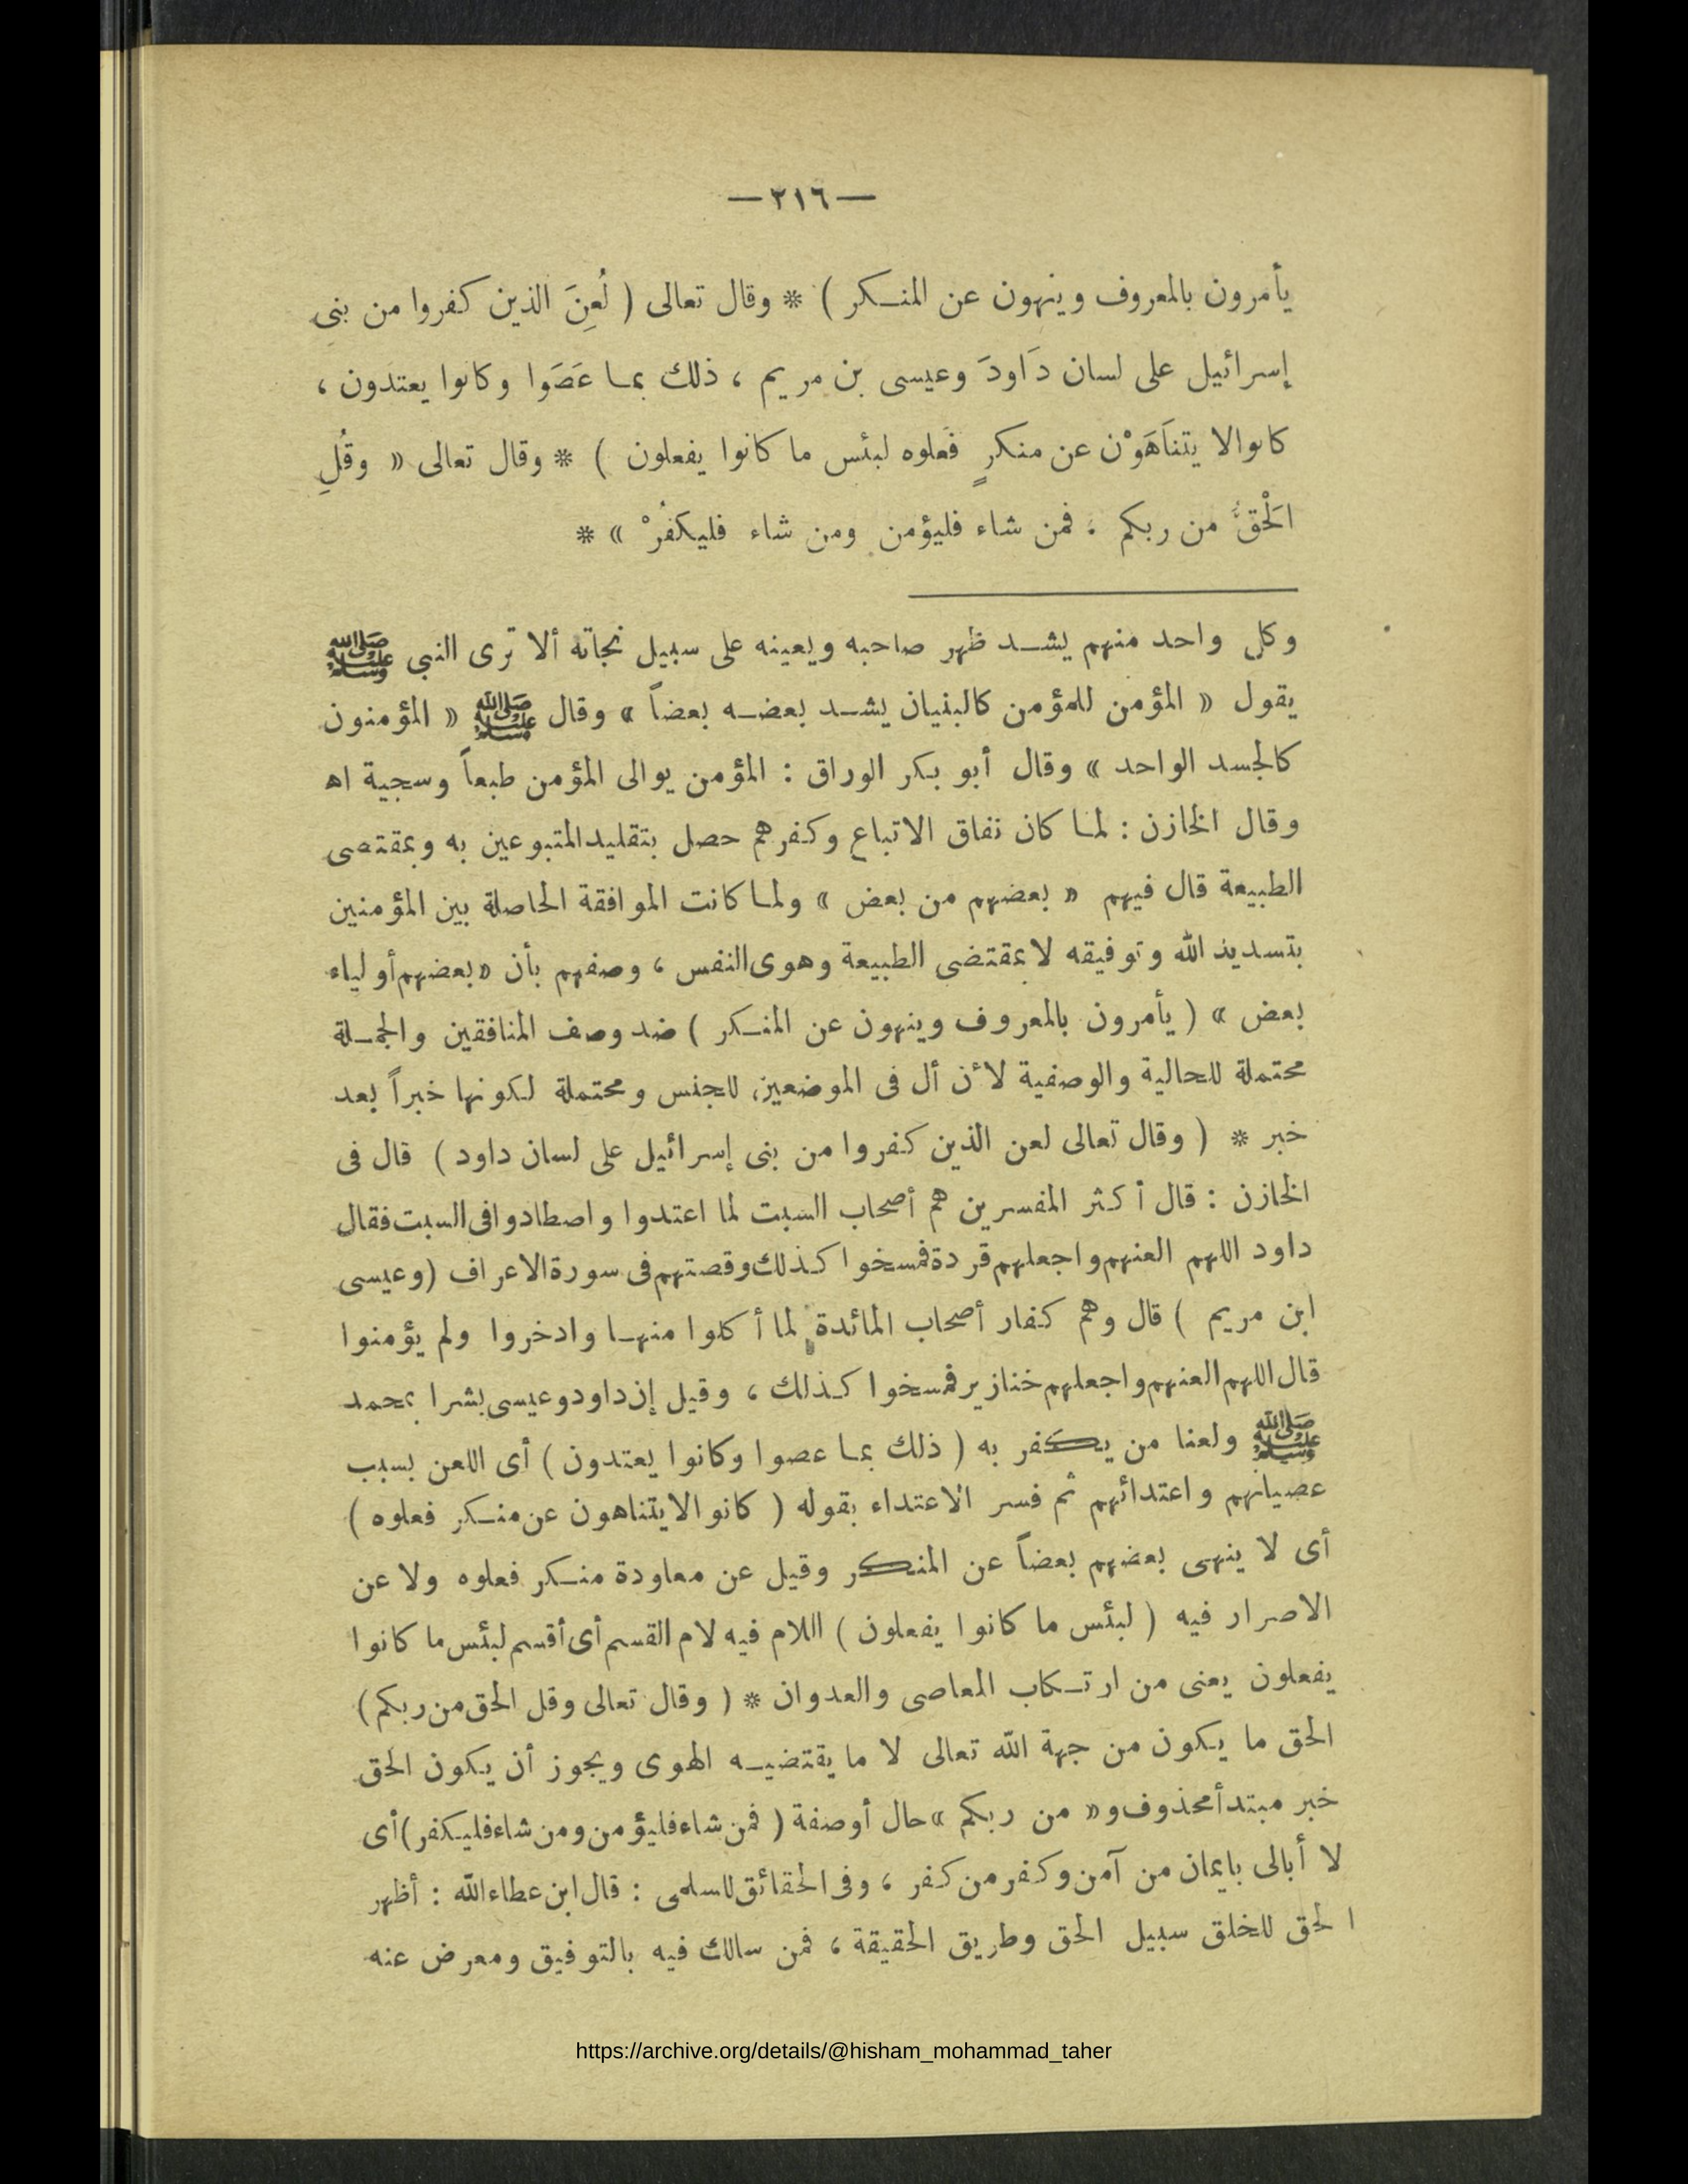 — ٢١٦ —
يأمرون بالمعروف وينهون عن المنكر ) * وقال تعالى ( لُعِنَ الذين كفروا من بنى
إسرائيل على لسان دَاودَ وعيسى بن مريم ، ذلك بما عَصَوا وكانوا يعتدون ،
كانوالا يتناَهَوْن عن منكرٍ فعلوه لبئس ما كانوا يفعلون ) * وقال تعالى « وقُلِ
الَحْقُّ من ربكم : فمن شاء فليؤمن ومن شاء فليكفُرْ » *
وكل واحد منهم يشد ظهر صاحبه ويعينه على سبيل نجاته ألا ترى النبى ﷺ
يقول « المؤمن للمؤمن كالبنيان يشد بعضه بعضاً » وقال ﷺ « المؤمنون
كالجسد الواحد » وقال أبو بكر الوراق : المؤمن يوالى المؤمن طبعاً وسجية اه
وقال الخازن : لما كان نفاق الاتباع وكفرهم حصل بتقليدالمتبوعين به وبمقتضى
الطبيعة قال فيهم « بعضهم من بعض » ولما كانت الموافقة الحاصلة بين المؤمنين
بتسديد الله وتوفيقه لا بمقتضى الطبيعة وهوى النفس ، وصفهم بأن «بعضهم أولياء
بعض » ( يأمرون بالمعروف وينهون عن المنكر ) ضد وصف المنافقين والجملة
محتملة للحالية والوصفية لأن أل فى الموضعين للجنس ومحتملة لكونها خبراً بعد
خبر * ( وقال تعالى لعن الذين كفروا من بنى إسرائيل على لسان داود ) قال فى
الخازن : قال أكثر المفسرين هم أصحاب السبت لما اعتدوا واصطادوا فى السبت فقال
داود اللهم العنهم واجعلهم قردة فمسخوا كذلك وقصتهم فى سورة الاعراف (وعيسى
ابن مريم ) قال وهم كفار أصحاب المائدة لما أكلوا منها وادخروا ولم يؤمنوا
قال اللهم العنهم واجعلهم خنازير فمسخوا كذلك ، وقيل إن داود وعيسى بشرا بمحمد
ﷺ ولعنا من يكفر به ( ذلك بما عصوا وكانوا يعتدون ) أى اللعن بسبب
عصيانهم واعتدائهم ثم فسر الاعتداء بقوله ( كانوا لايتناهون عن منكر فعلوه )
أى لا ينهى بعضهم بعضاً عن المنكر وقيل عن معاودة منكر فعلوه ولا عن
الاصرار فيه ( لبئس ما كانوا يفعلون ) اللام فيه لام القسم أى أقسم لبئس ما كانوا
يفعلون يعنى من ارتكاب المعاصى والعدوان * ( وقال تعالى وقل الحق من ربكم)
الحق ما يكون من جهة الله تعالى لا ما يقتضيه الهوى ويجوز أن يكون الحق
خبر مبتدأ محذوف و« من ربكم » حال أوصفة ( فمن شاء فليؤمن ومن شاء فليكفر)أى
لا أبالى بايمان من آمن وكفر من كفر ، وفى الحقائق للسلمى : قال ابن عطاء الله : أظهر
الحق للخلق سبيل الحق وطريق الحقيقة ، فمن سالك فيه بالتوفيق ومعرض عنه
https://archive.org/details/@hisham_mohammad_taher